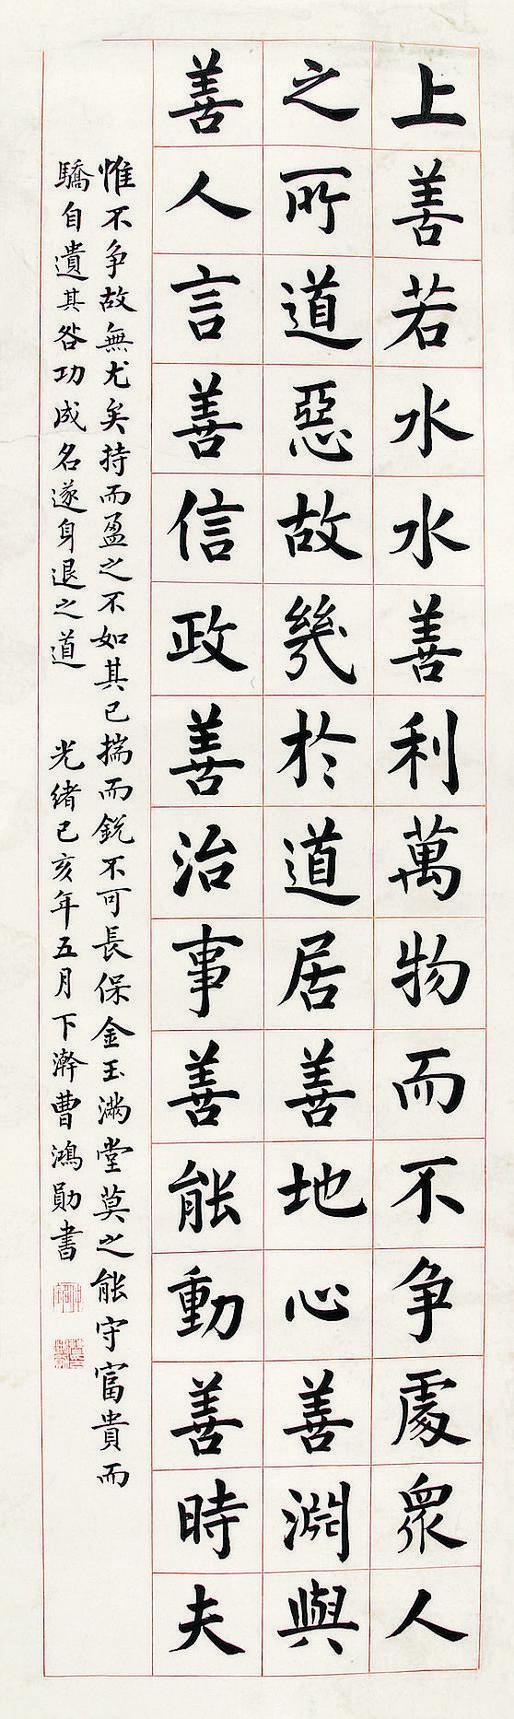 上善若水水善利萬物而不争處衆人
之所道惡故幾於道居善地心善淵與
善人言善信政善治事善能動善時夫
惟不争故無尤矣持而盈之不如其已揣而銳不可長保金玉滿堂莫之能守富貴而
驕自遺其咎功成名遂身退之道 光緒己亥年五月下澣曹鴻勛書